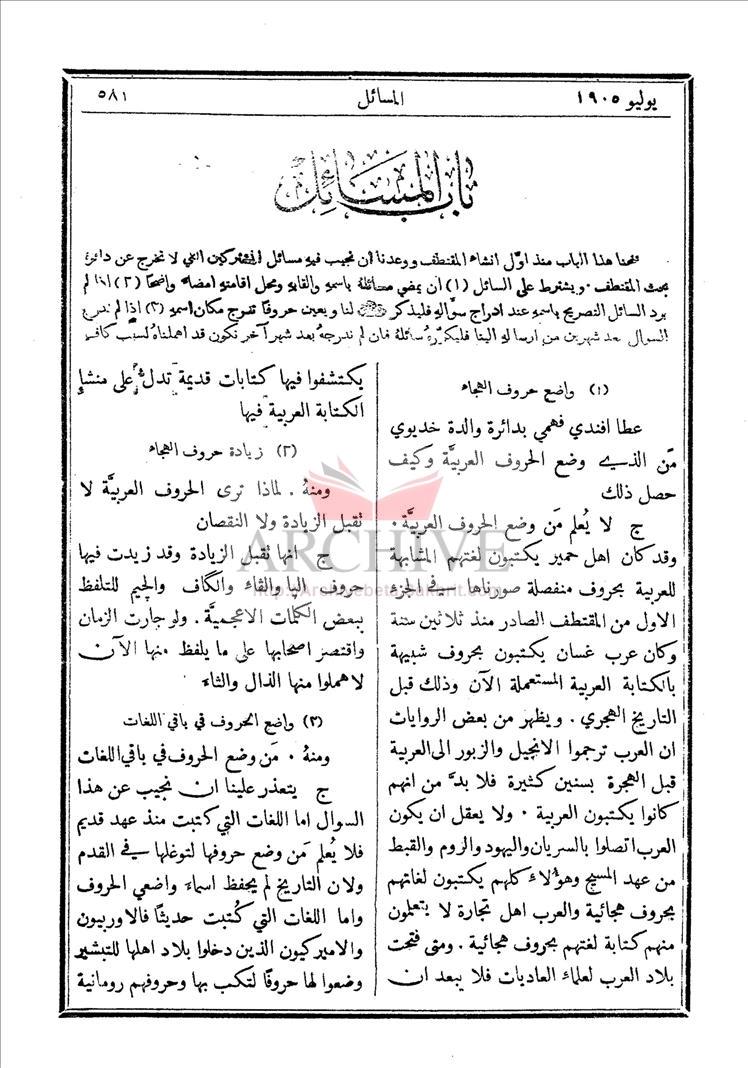 يوليو ١٩٠٥
المسائل
٥٨١
باب المسائل
فتحنا هذا الباب منذ اول انشاء المقتطف ووعدنا ان نجيب فيه مسائل المشتركين التي لا تخرج عن دائرة
بحث المقتطف . ويشترط على السائل (١) ان يمضي مسائله باسمه والقابه ومحل اقامته امضاء واضحا (٢) اذا لم
يرد السائل التصريح باسمه عند ادراج سؤاله فليذكر لنا ويعين حروفا تدرج مكان اسمه (٣) اذا لم ندرج
السوال بعد شهرين من ارساله الينا فليكرره سائله فان لم ندرجه بعد شهر آخر نكون قد اهملناه لسبب كاف
(١) واضع حروف الهجاء
عطا افندي فهمي بدائرة والدة خديوي
مَن الذي وضع الحروف العربيَّة وكيف
حصل ذلك
ج لا يُعلم مَن وضع الحروف العربيَّة .
وقد كان اهل حمير يكتبون لغتهم المشابهة
للعربية بحروف منفصلة صورناها في الجزء
الاول من المقتطف الصادر منذ ثلاثين سنة
وكان عرب غسان يكتبون بحروف شبيهة
بالكتابة العربية المستعملة الآن وذلك قبل
التاريخ الهجري . ويظهر من بعض الروايات
ان العرب ترجموا الانجيل والزبور الى العربية
قبل الهجرة بسنين كثيرة فلا بدَّ من انهم
كانوا يكتبون العربية . ولا يعقل ان يكون
العرب اتصلوا بالسريان واليهود والروم والقبط
من عهد المسيح وهؤلاء كلهم يكتبون لغاتهم
بحروف هجائية والعرب اهل تجارة لا يتعلمون
منهم كتابة لغتهم بحروف هجائية . ومتى فتحت
بلاد العرب لعلماء العاديات فلا يبعد ان
يكتشفوا فيها كتابات قديمة تدل على منشإِ
الكتابة العربية فيها
(٢) زيادة حروف الهجاء
ومنهُ . لماذا ترى الحروف العربيَّة لا
تقبل الزيادة ولا النقصان
ج انها تقبل الزيادة وقد زيدت فيها
حروف الپا والڤاء والگاف والچيم للتلفظ
ببعض الكلمات الاعجميَّة . ولو جارت الزمان
واقتصر اصحابها على ما يلفظ منها الآن
لاهملوا منها الذال والثاء
(٣) واضع الحروف في باقي اللغات
ومنهُ . مَن وضع الحروف في باقي اللغات
ج يتعذر علينا ان نجيب عن هذا
السوال اما اللغات التي كتبت منذ عهد قديم
فلا يُعلم مَن وضع حروفها لتوغلها في القدم
ولان التاريخ لم يحفظ اسماء واضعي الحروف
واما اللغات التي كُتبت حديثًا فالاوربيون
والاميركيون الذين دخلوا بلاد اهلها للتبشير
وضعوا لها حروفًا لتكتب بها وحروفهم رومانية
ARCHIVE